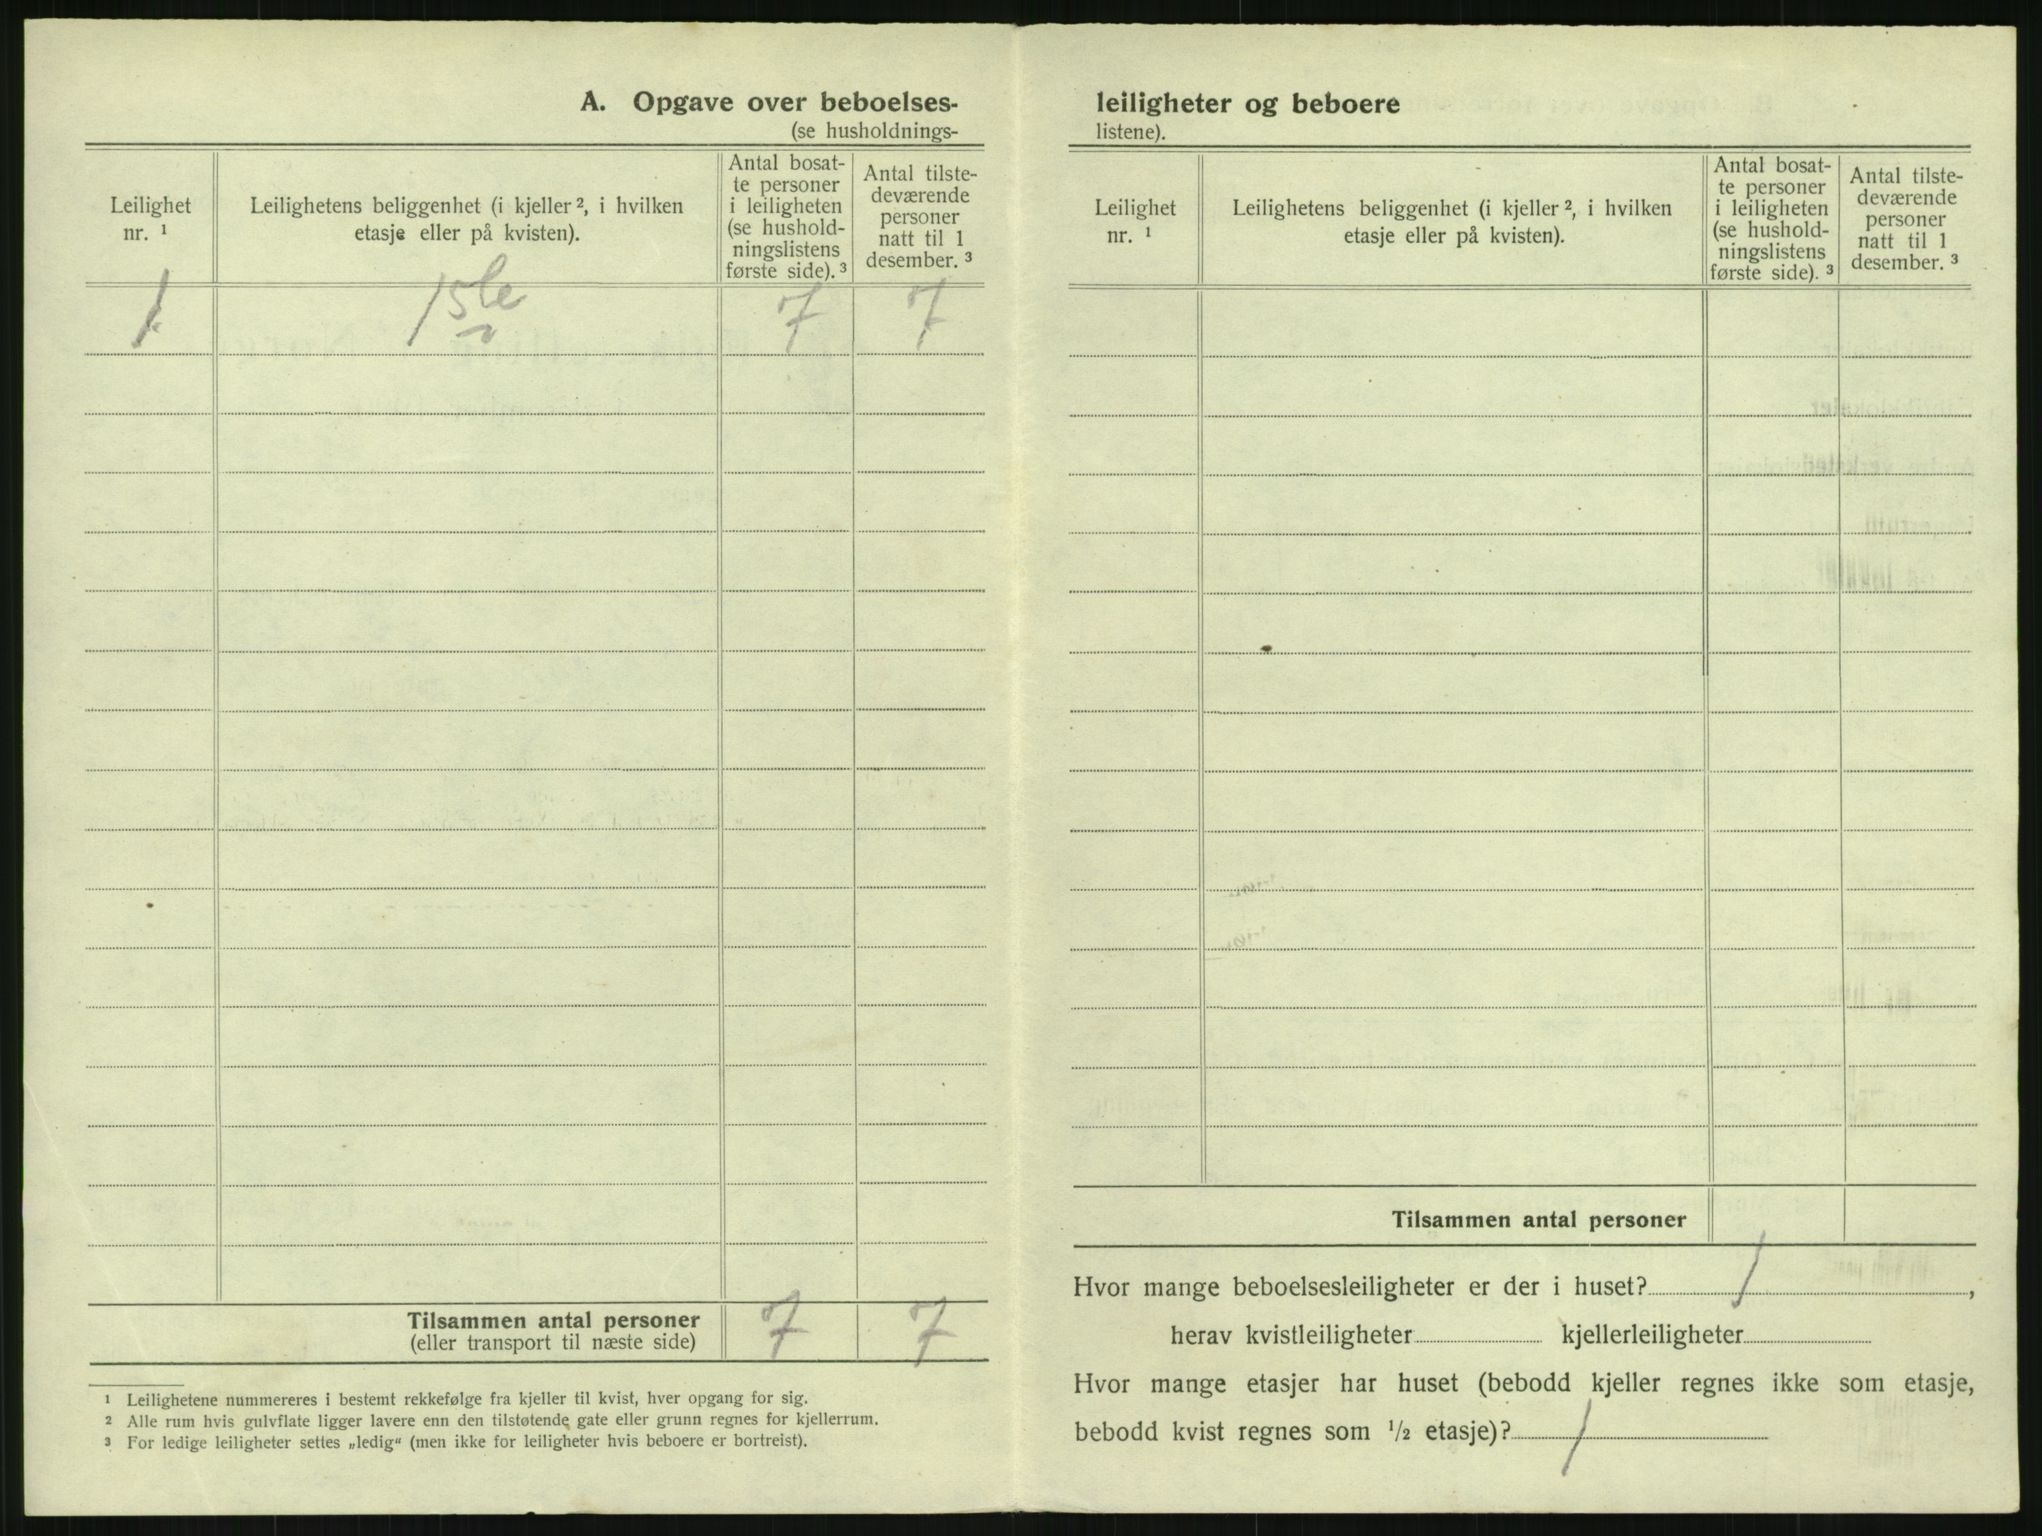 A. Opgave over beboelses-
(se husholdnings-
Leilighet nr. ¹
Leilighetens beliggenhet (i kjeller ², i hvilken
etasje eller på kvisten).
Antal bosat-
te personer
i leiligheten
(se hushold-
ningslistens
første side). ³
Antal tilste-
deværende
personer
natt til 1
desember. ³
1. 1ste 7 7
Tilsammen antal personer 7 7
(eller transport til næste side)
¹ Leilighetene nummereres i bestemt rekkefølge fra kjeller til kvist, hver opgang for sig.
² Alle rum hvis gulvflate ligger lavere enn den tilstøtende gate eller grunn regnes for kjellerrum.
³ For ledige leiligheter settes „ledig“ (men ikke for leiligheter hvis beboere er bortreist).
leiligheter og beboere
listene).
Leilighet nr. ¹
Leilighetens beliggenhet (i kjeller ², i hvilken
etasje eller på kvisten).
Antal bosat-
te personer
i leiligheten
(se hushold-
ningslistens
første side). ³
Antal tilste-
deværende
personer
natt til 1
desember. ³
Tilsammen antal personer
Hvor mange beboelsesleiligheter er der i huset? 1,
herav kvistleiligheter kjellerleiligheter
Hvor mange etasjer har huset (bebodd kjeller regnes ikke som etasje,
bebodd kvist regnes som ½ etasje)? 1